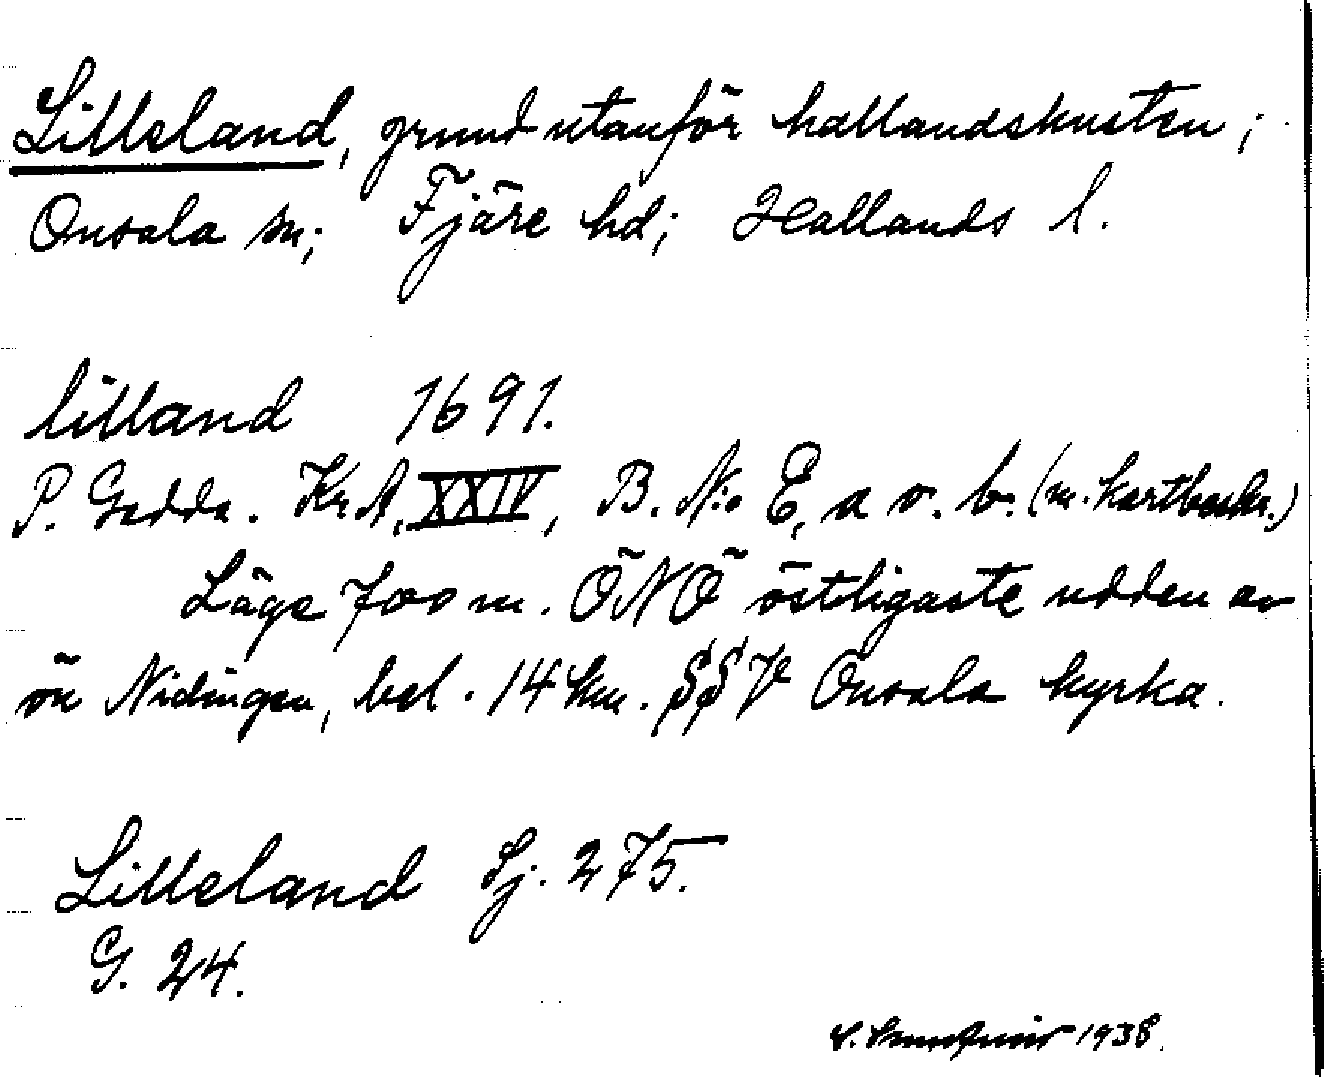 Lilleland, grund utanför hallandskusten;
Onsala sn; Fjäre hd; Hallands l.
lilland 1691.
P. Gedda. Kr. A. XXIV, B. N:o E, a o. b. (m. kartbeskr.)
Läge 700 m. ÖNÖ östligaste udden av
ön Nidingen, bel. 14 km. SSV Onsala kyrka.
Lilleland Sj. 275.
G. 24.
1938.